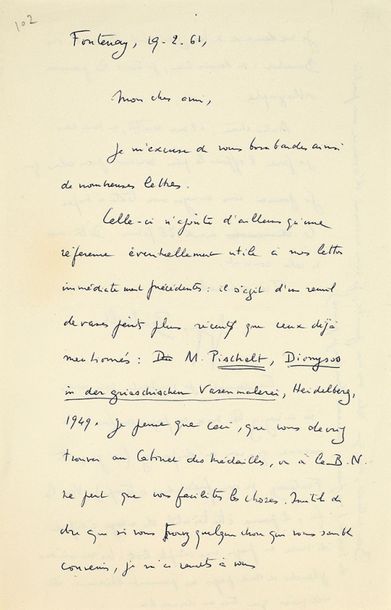 102
Fontenay, 19-2-61,
Mon cher ami,
Je m'excuse de vous bombarder ainsi
de nombreuses lettres.
Celle-ci n'ajoute d'ailleurs qu'une
référence éventuellement utile à nos lettres
immédiatement précédentes : il s'agit d'un recueil
de vases peints plus récent que ceux déjà
mentionnés : M. Pischelt, Dionysos
in der griechischen Vasenmalerei, Heidelberg,
1949. Je pense que ceci, que vous devriez
trouver au Cabinet des Médailles, ou à la B.N.
ne peut que vous faciliter les choses. Inutile de
dire que si vous quelque chose qui vous semble
convenir, je m'en remets à vous